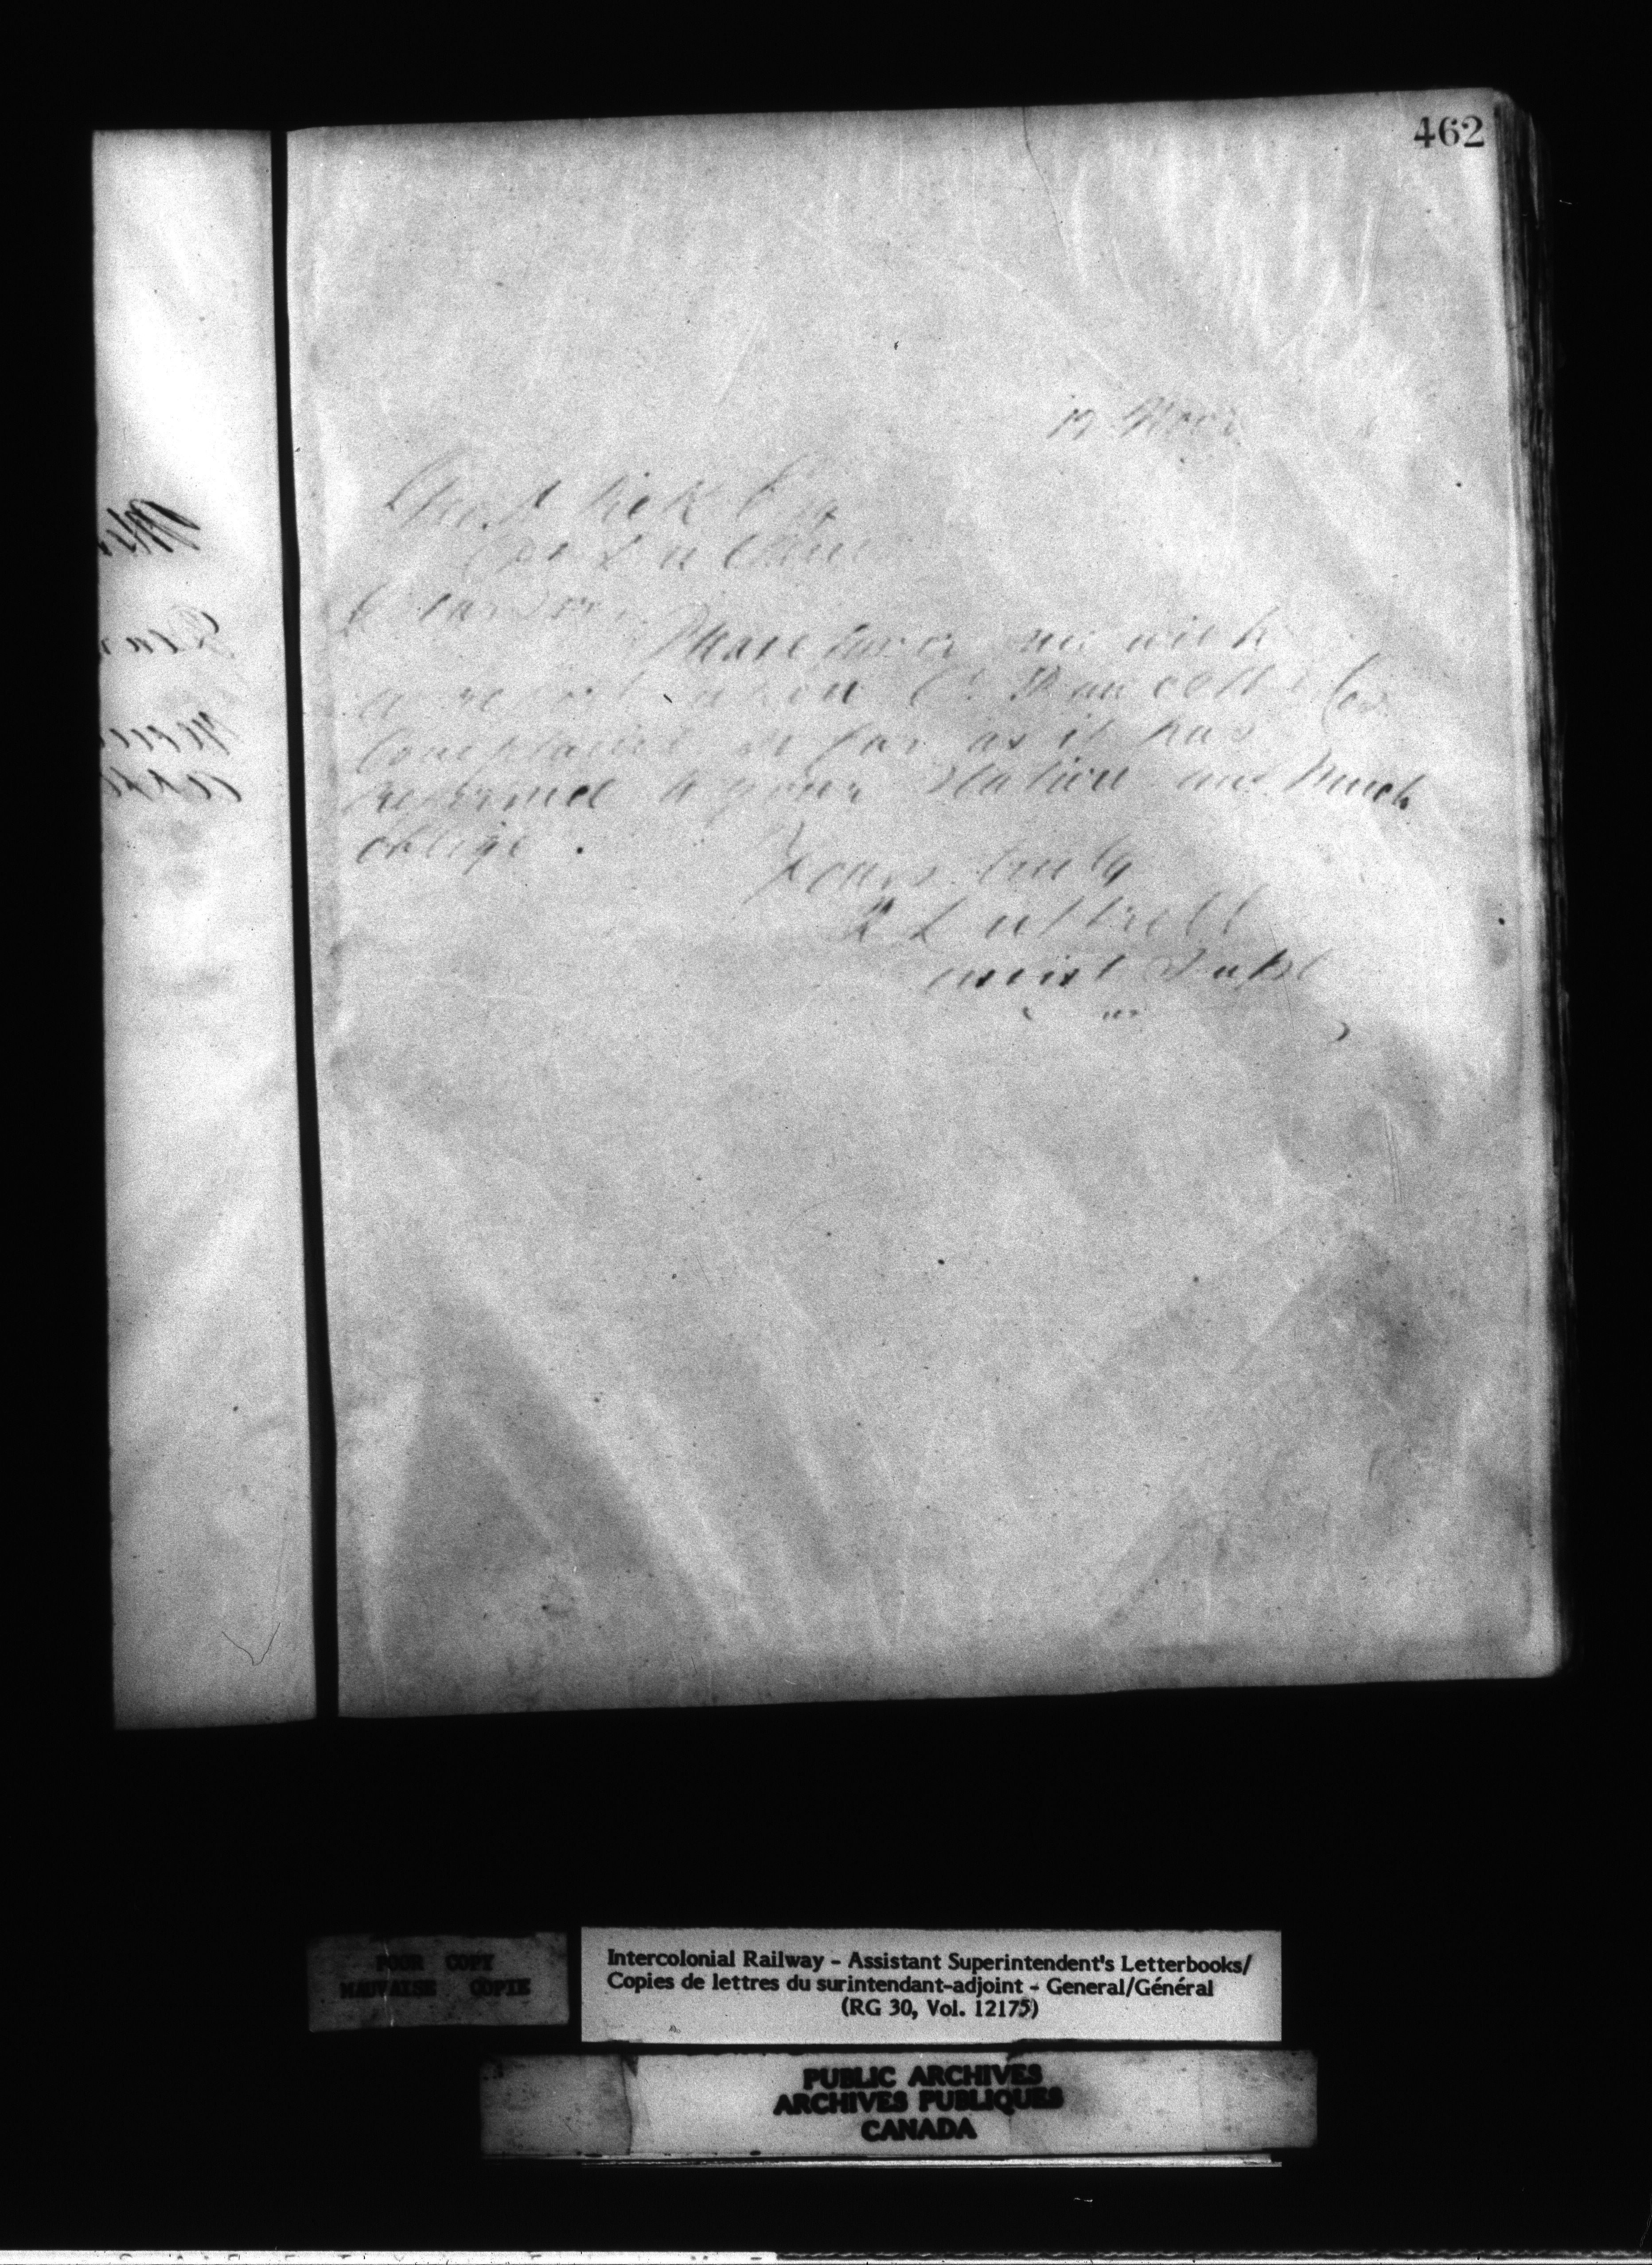 462
19 Novr
Dear Sir
Please favor me with
a report upon C. Fawcett & Co
Complaint so far as it has
reference to your Station and Much
oblige.
Yours truly
R Luttrell
assist Supt
POOR COPY
MAUVAISE COPIE
Intercolonial Railway - Assistant Superintendent's Letterbooks/
Copies de lettres du surintendant-adjoint - General/Général
(RG 30, Vol. 12175)
PUBLIC ARCHIVES
ARCHIVES PUBLIQUES
CANADA